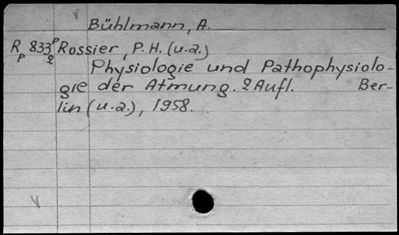 Bühlmann, A.
Rp 833 P/2 Rossier, P. H. (u.a.)
Physiologie und Pathophysiolo-
gie der Atmung. 2 Aufl. Ber-
lin (u.a.), 1958.